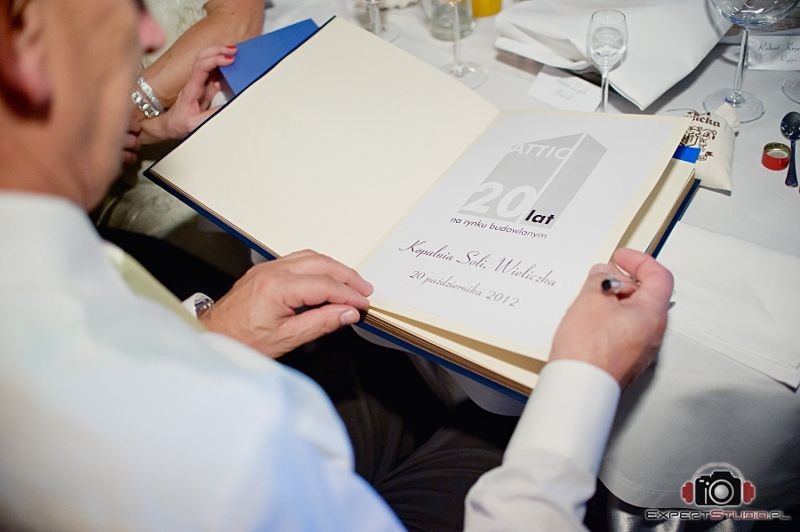 ATTIC
20 lat
na rynku budowlanym
Kopalnia Soli, Wieliczka
20 października 2012
Robert
EXPERTSTUDIO.PL